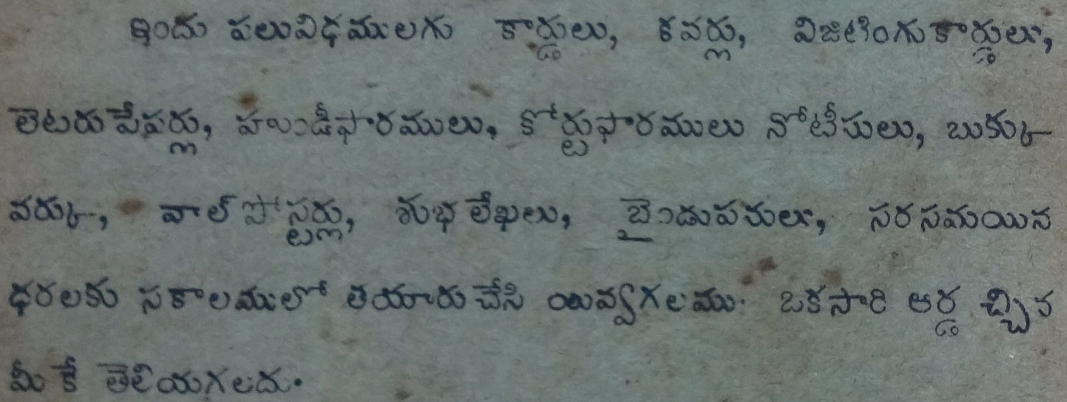 ఇందు పలువిధములగు కార్డులు, కవర్లు, విజిటింగుకార్డులు,
లెటరుపేపర్లు, హుండీఫారములు, కోర్టుఫారములు నోటీసులు, బుక్కు
వర్కు, వాల్ పోస్టర్లు, శుభలేఖలు, బైండుపనులు, సరసమయిన
ధరలకు సకాలములో తయారుచేసి యివ్వగలము. ఒకసారి ఆర్డ చ్చిన
మీకే తెలియగలదు.